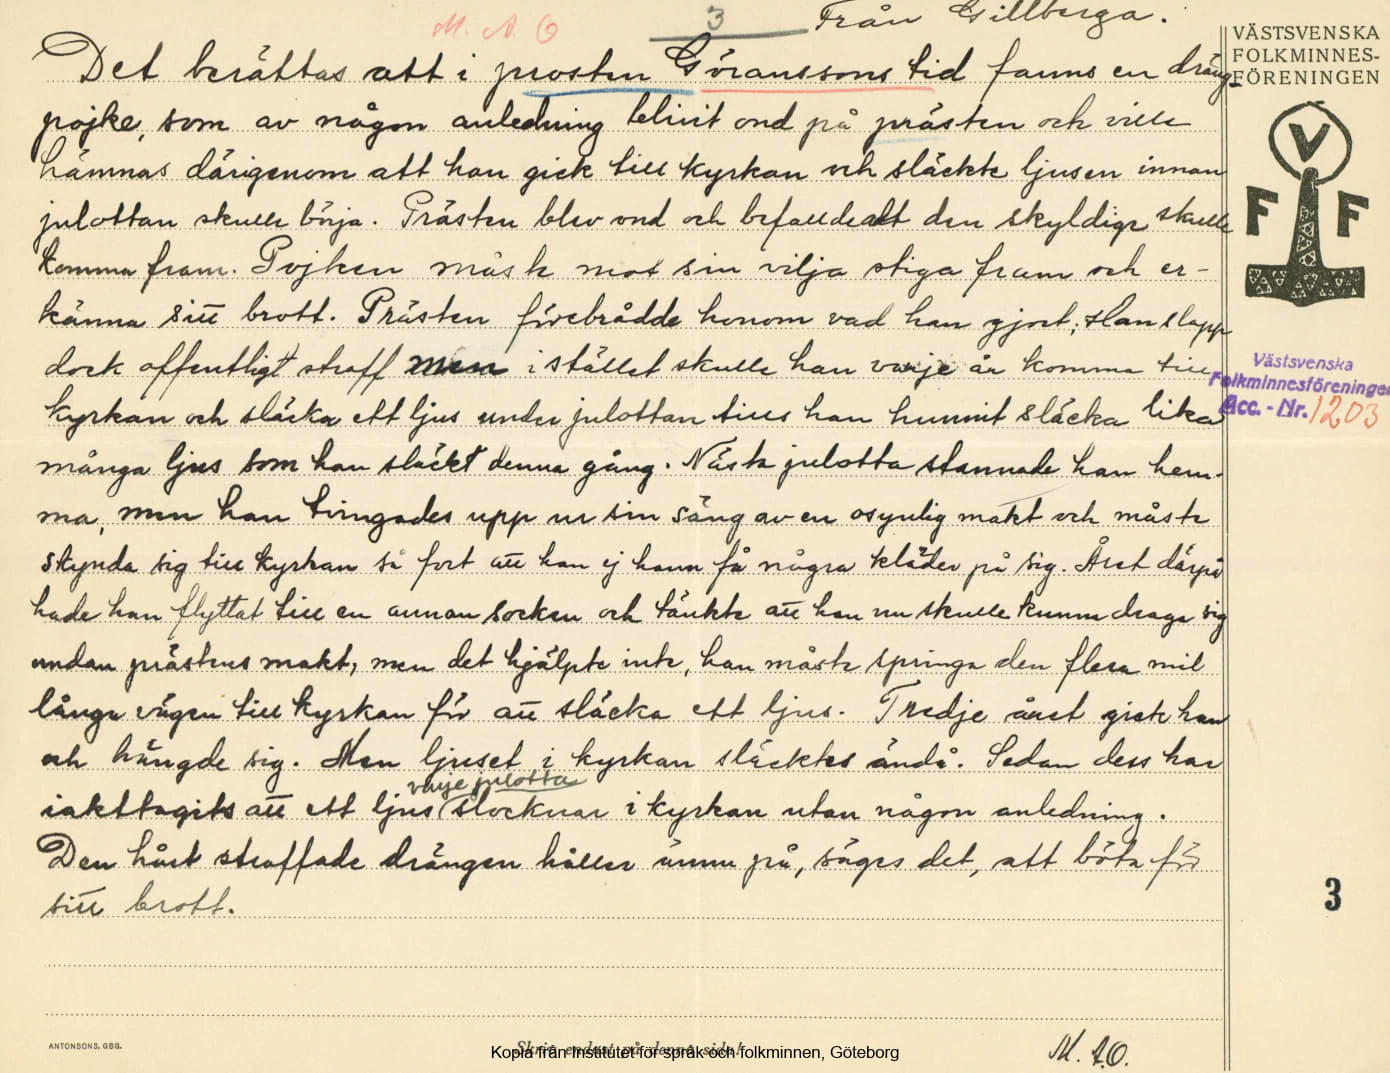 M. A. O
3
Från Gillberga.
Det berättas att i prosten Göranssons tid fanns en dräng-
pojke, som av någon anledning blivit ond på prästen och ville
hämnas därigenom att han gick till kyrkan och släckte ljusen innan
julottan skulle börja. Prästen blev ond och befallde att den skyldige skulle
komma fram. Pojken måste mot sin vilja stiga fram och er-
känna sitt brott. Prästen förebrådde honom vad han gjort; Han slapp
dock offentligt straff men i stället skulle han varje år komma till
kyrkan och släcka ett ljus under julottan tills han hunnit släcka lika
många ljus som han släckt denna gång. Nästa julotta stannade han hem-
ma, men han tvingades upp ur sin säng av en osynlig makt och måste
skynda sig till kyrkan så fort att han ej hann få några kläder på sig. Året därpå
hade han flyttat till en annan socken och tänkte att han nu skulle kunna draga sig
undan prästens makt, men det hjälpte inte, han måste springa den flera mil
långa vägen till kyrkan för att släcka ett ljus. Tredje året gick han
och hängde sig. Men ljuset i kyrkan släcktes ändå. Sedan dess har
varje julotta
iakttagits att ett ljus slocknar i kyrkan utan någon anledning.
Den hårt straffade drängen håller ännu på, säges det, att böta för
sitt brott.
VÄSTSVENSKA
FOLKMINNES-
FÖRENINGEN
V
F F
Västsvenska
Folkminnesföreningen
Acc. - Nr. 1203
3
ANTONSONS, GBG.
Skriv endast på denna sida!
Kopia från Institutet för språk och folkminnen, Göteborg
M. A.O.